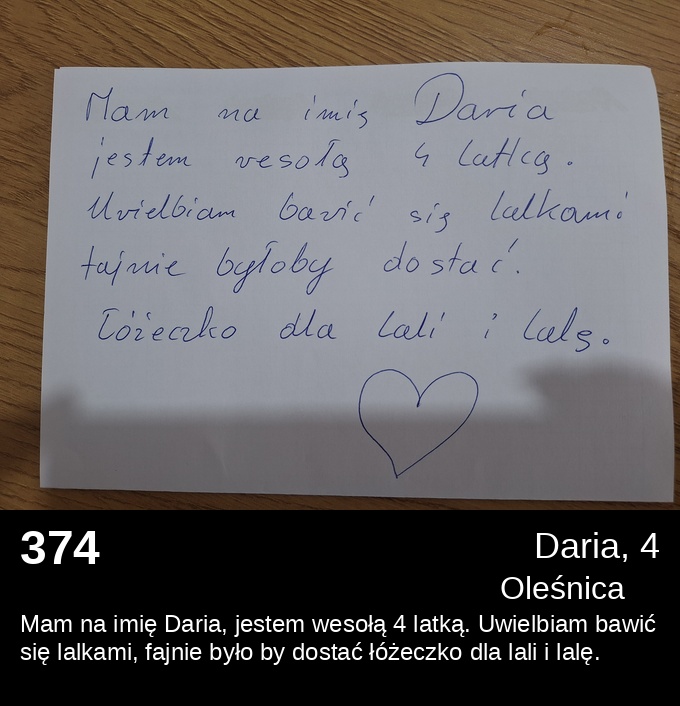 Mam na imię Daria
jestem wesołą 4 latką.
Uwielbiam bawić się lalkami
fajnie byłoby dostać.
Łóżeczko dla lali i lalę.
374
Daria, 4
Oleśnica
Mam na imię Daria, jestem wesołą 4 latką. Uwielbiam bawić
się lalkami, fajnie było by dostać łóżeczko dla lali i lalę.